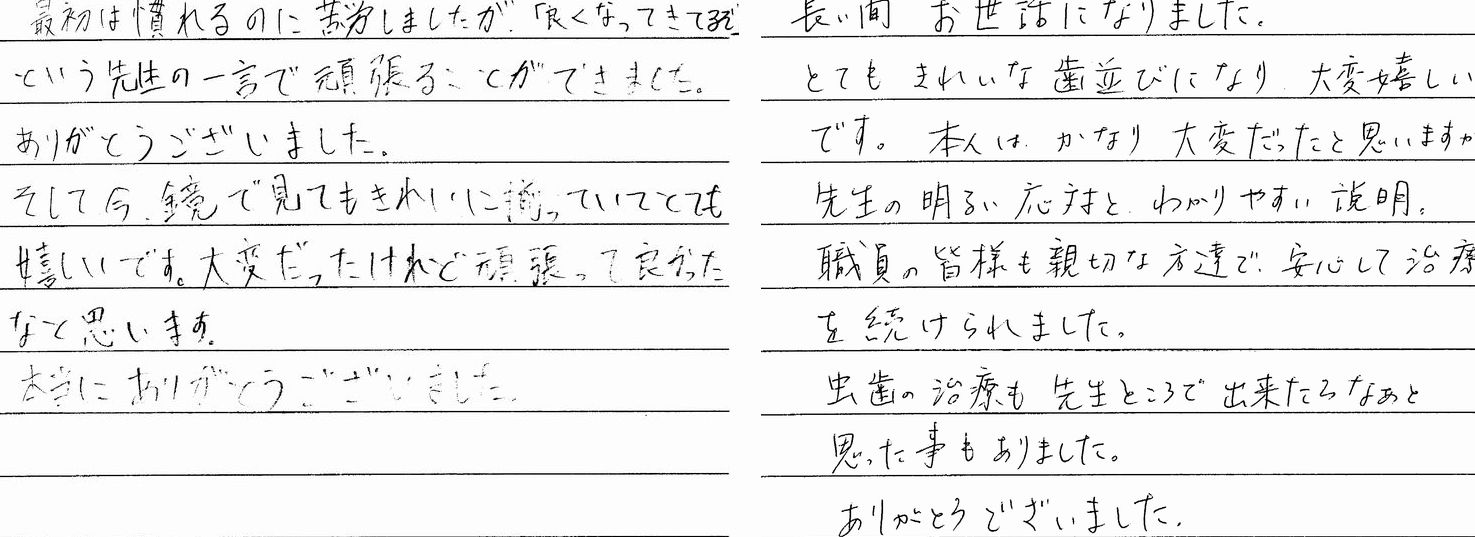 最初は慣れるのに苦労しましたが、「良くなってきてるぞ」
という先生の一言で頑張ることができました。
ありがとうございました。
そして今、鏡で見てもきれいに揃っていてとても
嬉しいです。大変だったけれど頑張って良かった
なと思います。
本当にありがとうございました。
長い間 お世話になりました。
とても きれいな歯並びになり、大変嬉しい
です。 本人は、かなり大変だったと思いますが
先生の明るい応対と、わかりやすい説明。
職員の皆様も親切な方達で、安心して治療
を続けられました。
虫歯の治療も先生ところで出来たらなぁと
思った事もありました。
ありがとうございました。